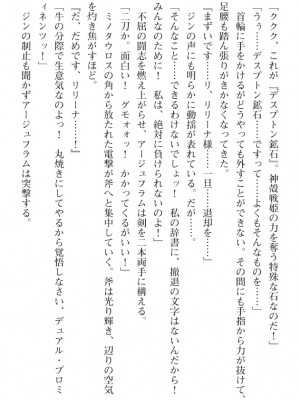 「ククク、これが『デスプトン鉱石』。神殻戦姫の力を奪う特殊な石なのだ！」
「うぅ……デスプトン鉱石……ですって……よくもそんなものを……」
首輪に手をかけるがどうやっても外すことができない。その間にも手指から力が抜けて、
足腰も踏ん張りがきかなくなってきた。
『まずいです……リ、リリーナ様……一旦……退却を……』
ジンの声にも明らかに動揺が表れている。だが……。
「そんなこと……できるわけないでしょッ！　私の辞書に、撤退の文字はないんだから！
みんなのために！　私は、絶対に負けられないのよ！」
不屈の闘志を燃え上がらせ、アージュフラムは剣を二本両手に構える。
「二刀か。面白い！　グモォォッ！　かかってくるがいい！」
ミノタウロスの角から放たれた電撃が斧へと集中していく。斧は光り輝き、辺りの空気
を灼き焦がすほど。
『だ、だめです、リリーナ……！』
「牛の分際で生意気なのよっ！　丸焼きにしてやるから覚悟しなさい、デュアル・プロミ
ィネンツッ！」
ジンの制止も聞かずアージュフラムは突撃する。